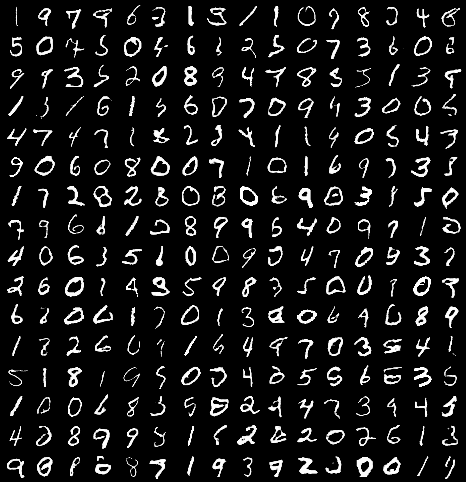 1 9 7 9 6 3 1 1 1 0 9 8 3 4
5 0 7 5 0 6 2 5 0 7 3 6 0 6
9 9 3 5 2 0 8 9 4 8 5 5 1 3 9
1 3 1 6 1 5 6 0 7 0 9 4 3 0 0
4 7 4 7 1 2 1 1 9 0 5 4 3
9 0 6 0 8 0 0 7 1 0 1 6 9 7 3 3
1 7 2 8 2 8 0 8 0 6 9 3 1 5 0
7 9 6 1 8 9 9 6 4 0 9 7 1 2
4 0 6 3 5 1 0 0 9 4 7 0 9 3 7
2 6 0 1 9 5 9 8 7 5 0 0 1 0 9
6 0 6 1 7 0 1 3 0 6 9 0 8 9
1 2 6 0 9 1 6 4 9 7 0 3 5 4 1
5 1 8 1 9 5 0 4 0 5 5 6 3 5
1 0 0 6 8 3 5 8 2 4 7 3 9 4 5
4 8 9 9 9 1 6 2 2 2 0 2 6 1 3
9 8 8 6 8 7 1 9 3 9 2 0 0 1 9